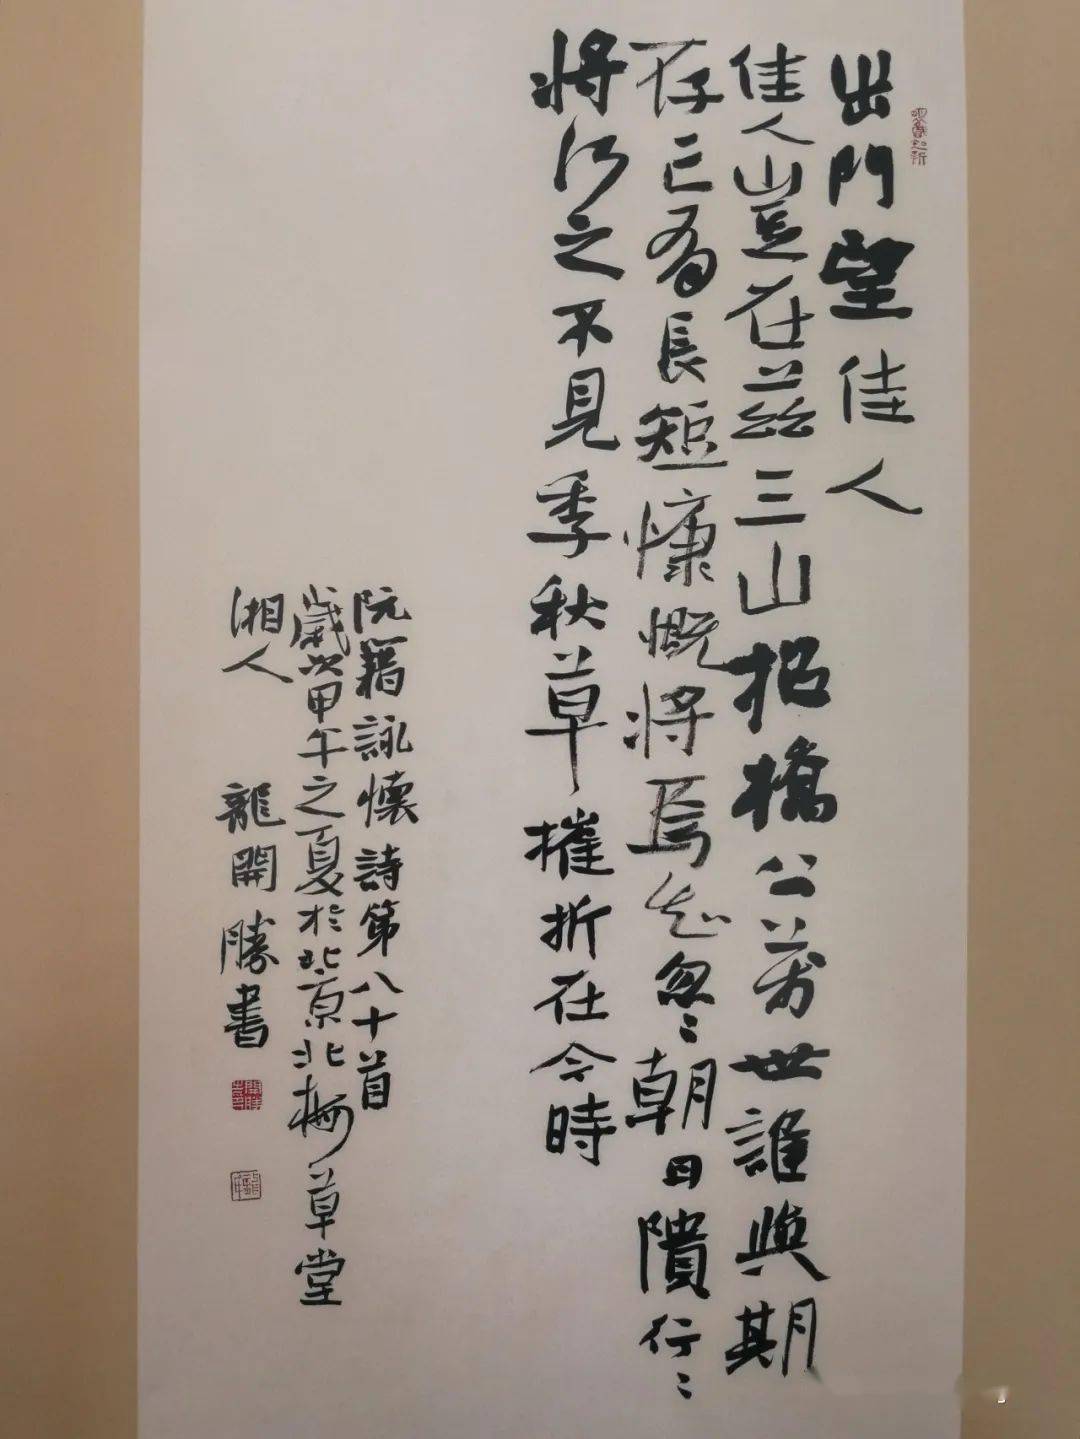 出門望佳人
佳人豈在茲三山招橋公萬世誰與期
存亡有長短慷慨將焉知忽〻朝日隤行〻
將何之不見季秋草摧折在今時
阮籍詠懷詩第八十首
歲次甲午之夏於北京北梅草堂
湘人 龍開勝書